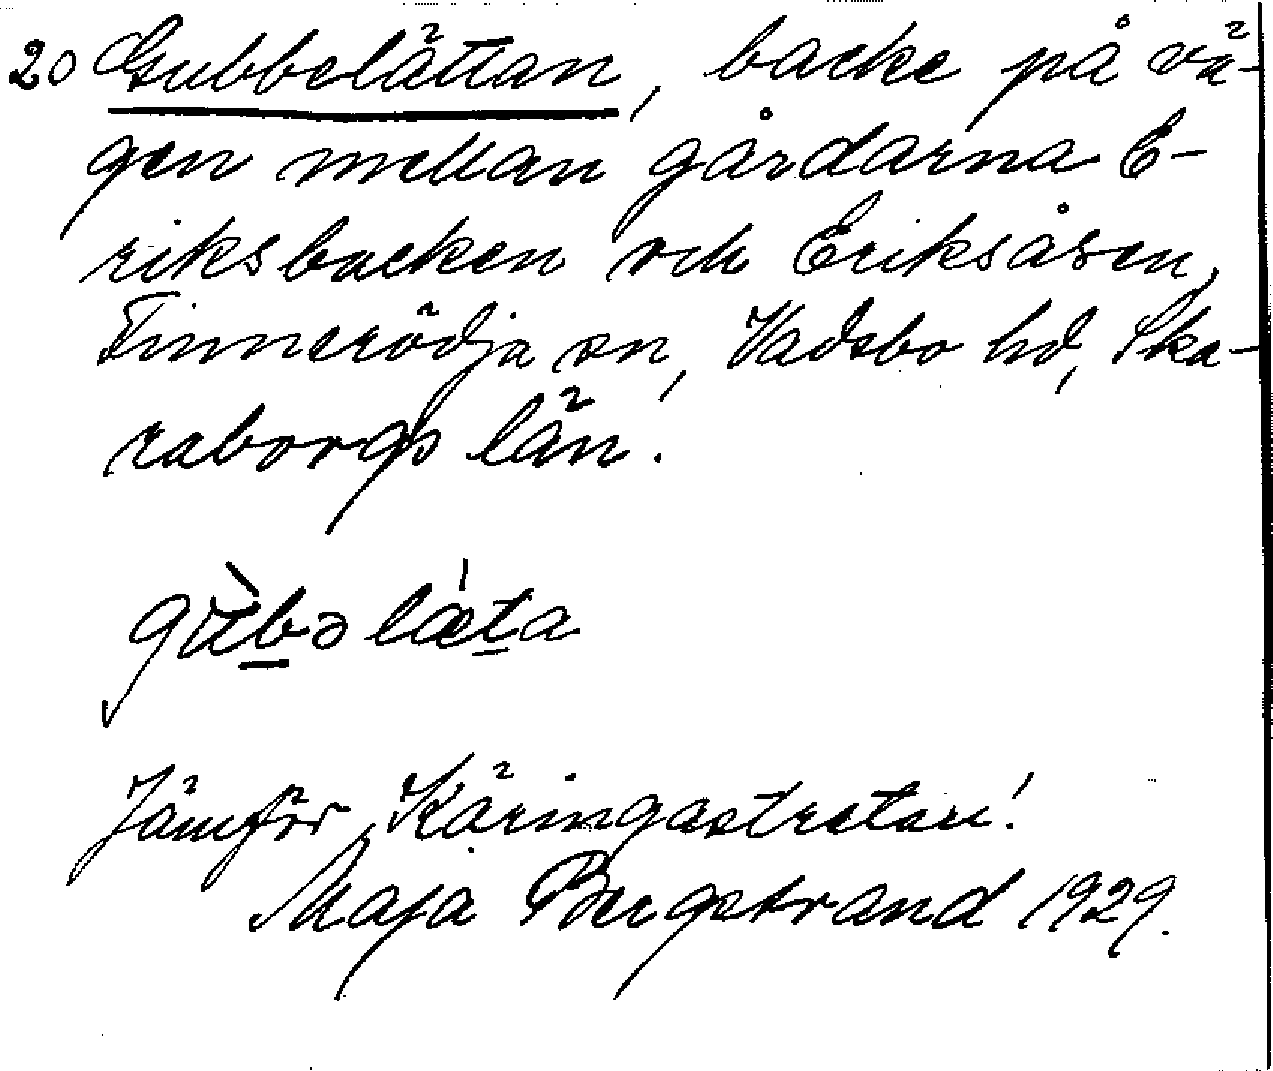 20 Gubbelättan, backe på vä-
gen mellan gårdarna E-
riksbacken och Eriksåsen,
Finnerödja sn, Vadsbo hd, Ska-
raborgs län.
gùbə lǽta
Jämför Käringastretan!
Maja Bergstrand 1929.